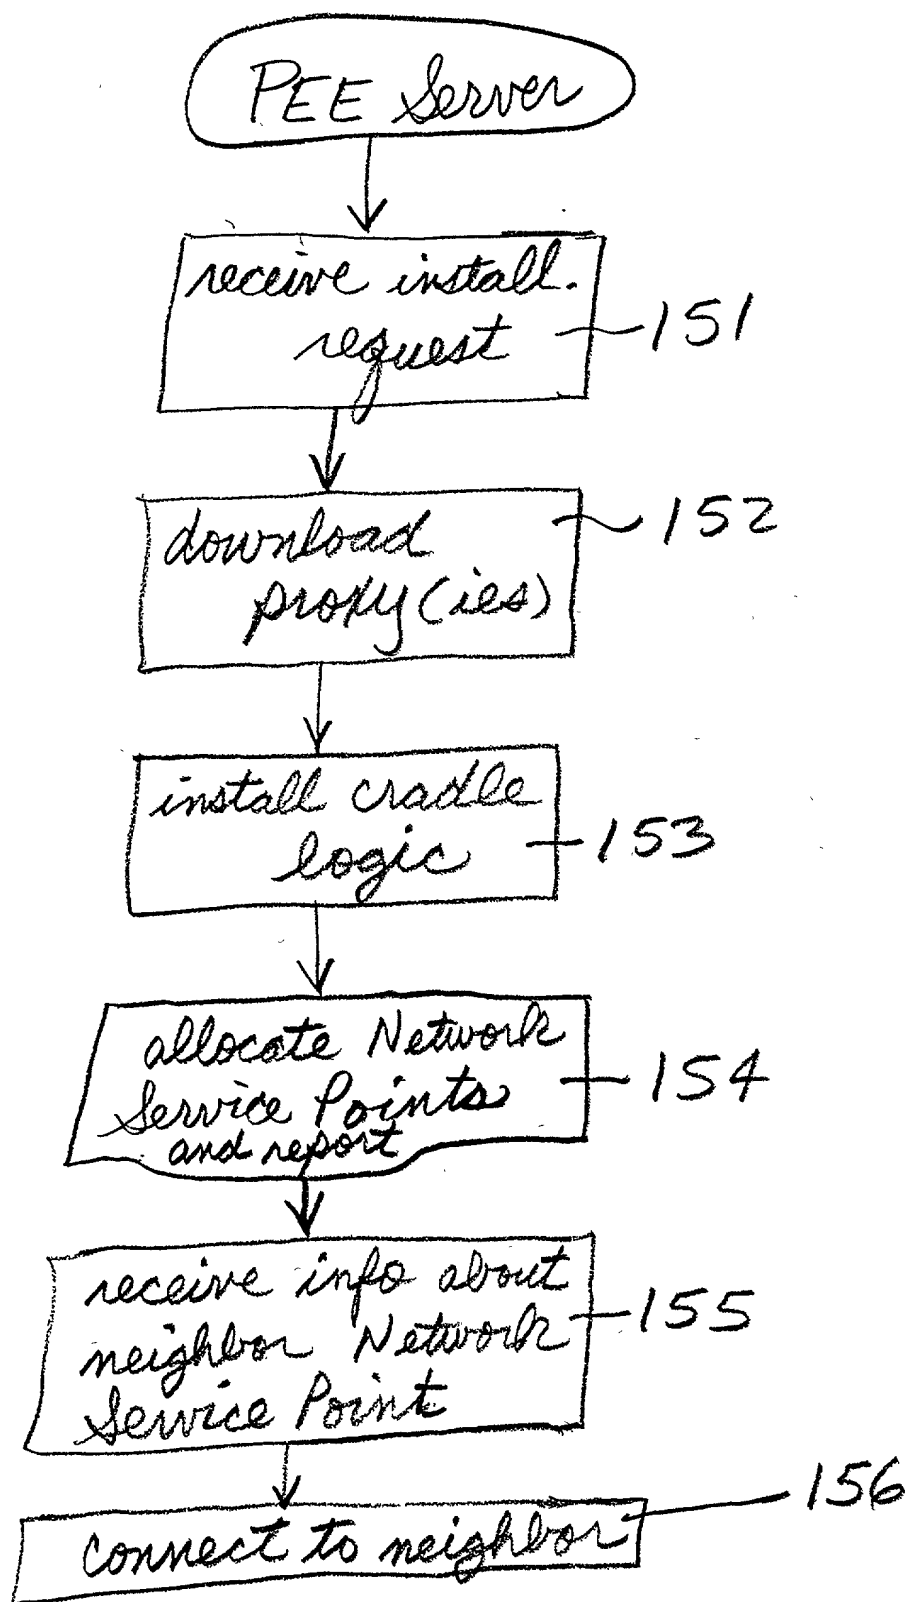 PEE Server
receive install.
request
151
download
proxy(ies)
152
install cradle
logic
153
allocate Network
Service Points
and report
154
receive info about
neighbor Network
Service Point
155
connect to neighbor
156